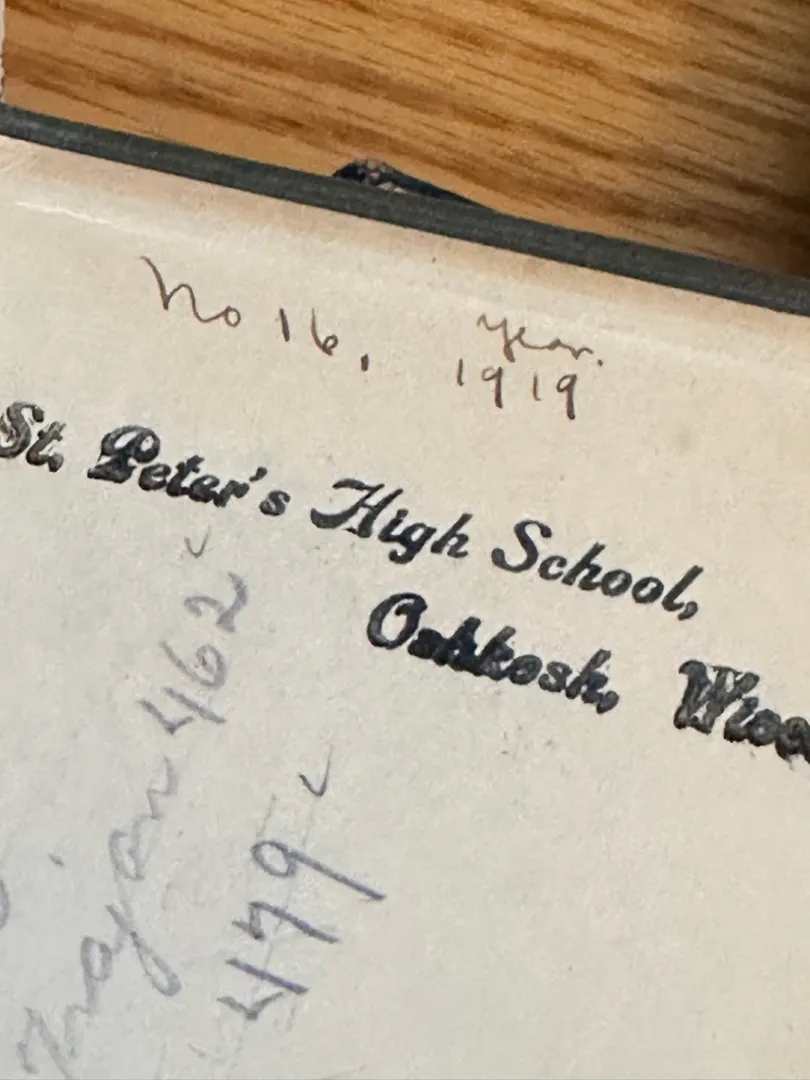 No 16. year.
1919
St. Peter's High School,
Oshkosh, Wisc
Trajan 462
479